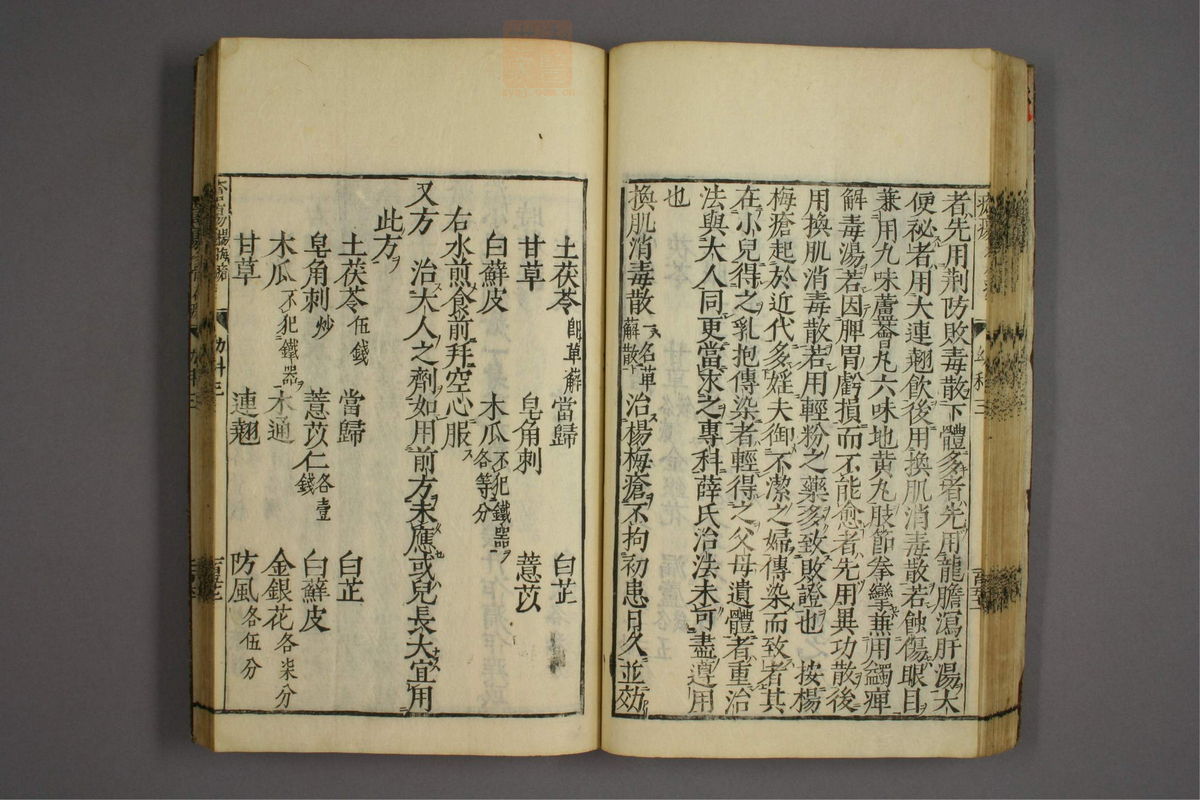 者先用荆防敗毒散下體多者先用龍膽瀉肝湯大
便祕者用大連翹飲後用換肌消毒散若蝕傷眼目
兼用九味蘆薈丸六味地黄丸肢節拳攣兼用蠲痺
解毒湯若因脾胃虧損而不能愈者先用異功散後
用換肌消毒散若用輕粉之藥多致敗證也 按楊
梅瘡起於近代多婬夫御不潔之婦傳染而致者其
在小兒得之乳抱傳染者輕得之父母遺體者重治
法與大人同更當求之專科薛氏治法未可盡遵用
也
換肌消毒散 一名萆薢散 治楊梅瘡不拘初患日久並効
土茯苓 即萆薢 當歸 白芷
甘草 皂角刺 薏苡
白蘚皮 木瓜 不犯鐵器各等分
右水煎食前拜空心服
又方 治大人之劑如用前方未應或兒長大宜用
此方
土茯苓 伍錢 當歸 白芷
皂角刺 炒 薏苡仁 各壹錢 白蘚皮
木瓜 不犯鐵器 木通 金銀花 各柒分
甘草 連翹 防風 各伍分
幼科三